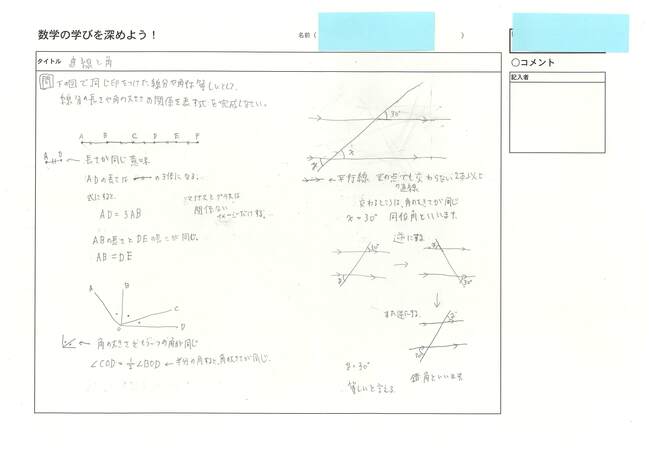 数学の学びを深めよう！
名前（　　　）
タイトル 直線と角
〇コメント
記入者
問 下の図で同じ印をつけた線分や角は等しいとして、
線分の長さや角の大きさの関係を表す式を完成しなさい。
A B C D E F
A B ← 長さが同じ意味
ADの長さは の3倍になる。
式にすると、
AD=3AB
マイナスとプラスは
関係ない
イメージだけする。
ABの長さとDEの長さが同じ。
AB=DE
A B C D O
← 角の大きさ
∠COD=1/2∠BOD ← 半分の角度と角の大きさが同じ。
30°
x
← 平行線 どの点でも交わらない2本以上の直線
交わるところは、角の大きさが同じ
x=30° 同位角といいます
30°
逆にする
→
30°
↓
また逆にする。
30°
錯角といいます
等しいと言える